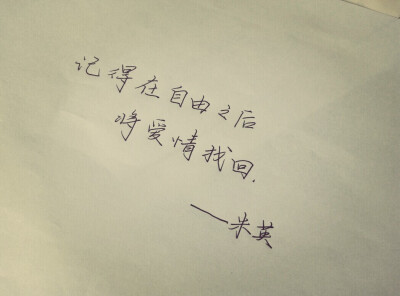 记得在自由之后
将爱情找回.
——米英